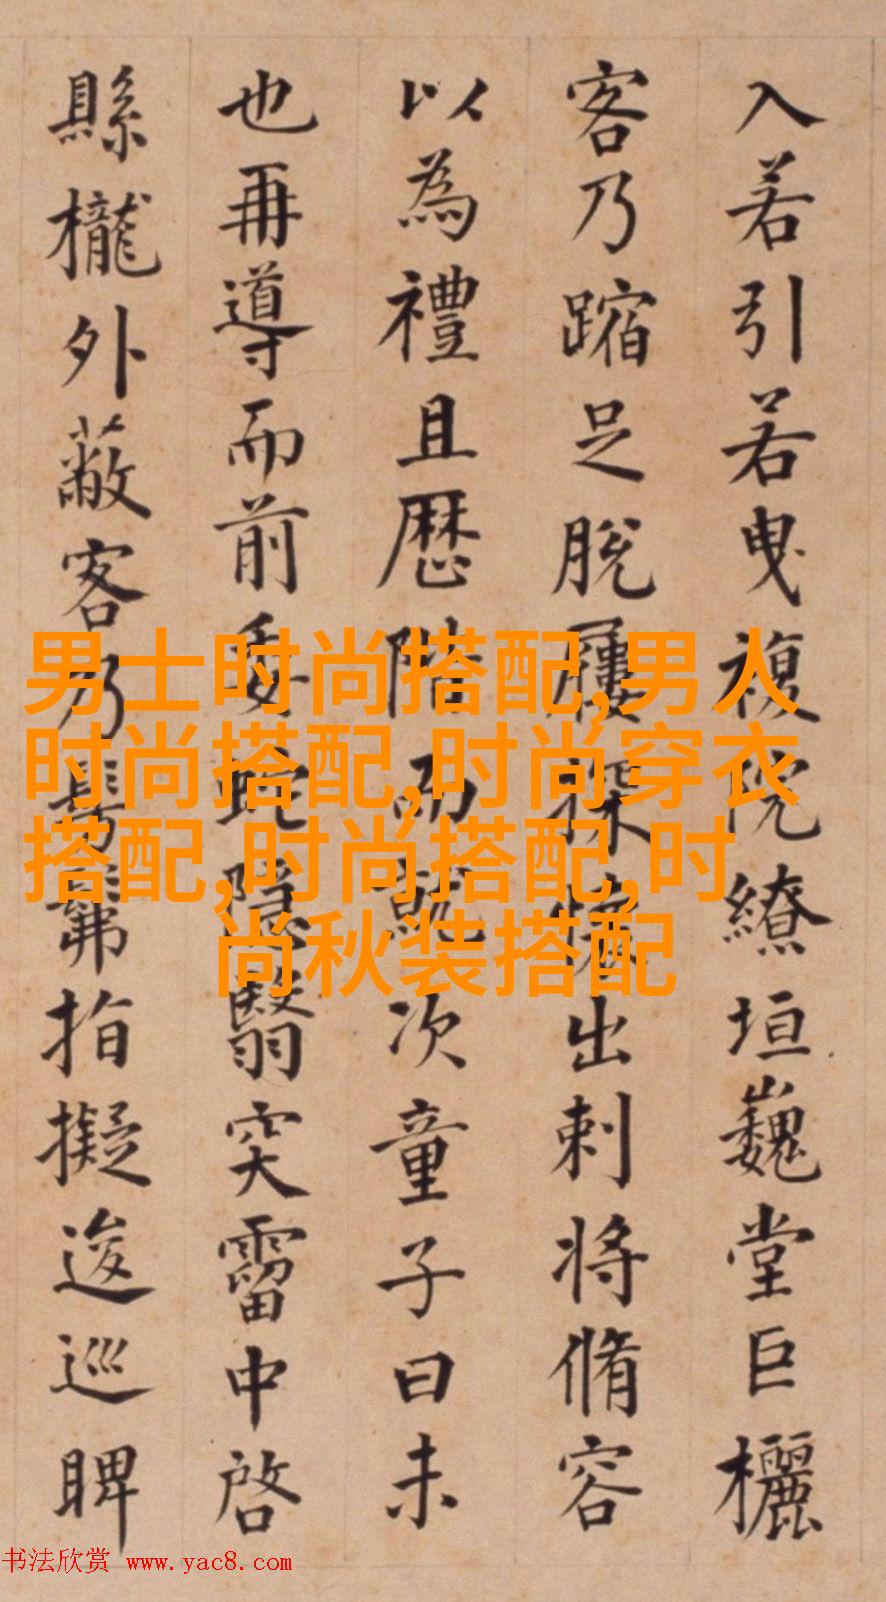 入若引若曳複院繚垣巍堂巨欐
客乃蹜足脫屨探懷出刺將脩容
以為禮且歷階而就次童子曰未
也再導而前委蛇隱翳突霤中啓
縣櫳外蔽客乃髣髴指擬逡巡睥
男士时尚搭配,男人
时尚搭配,时尚穿衣
搭配,时尚搭配,时
尚秋装搭配
书法欣赏 www.yac8.com